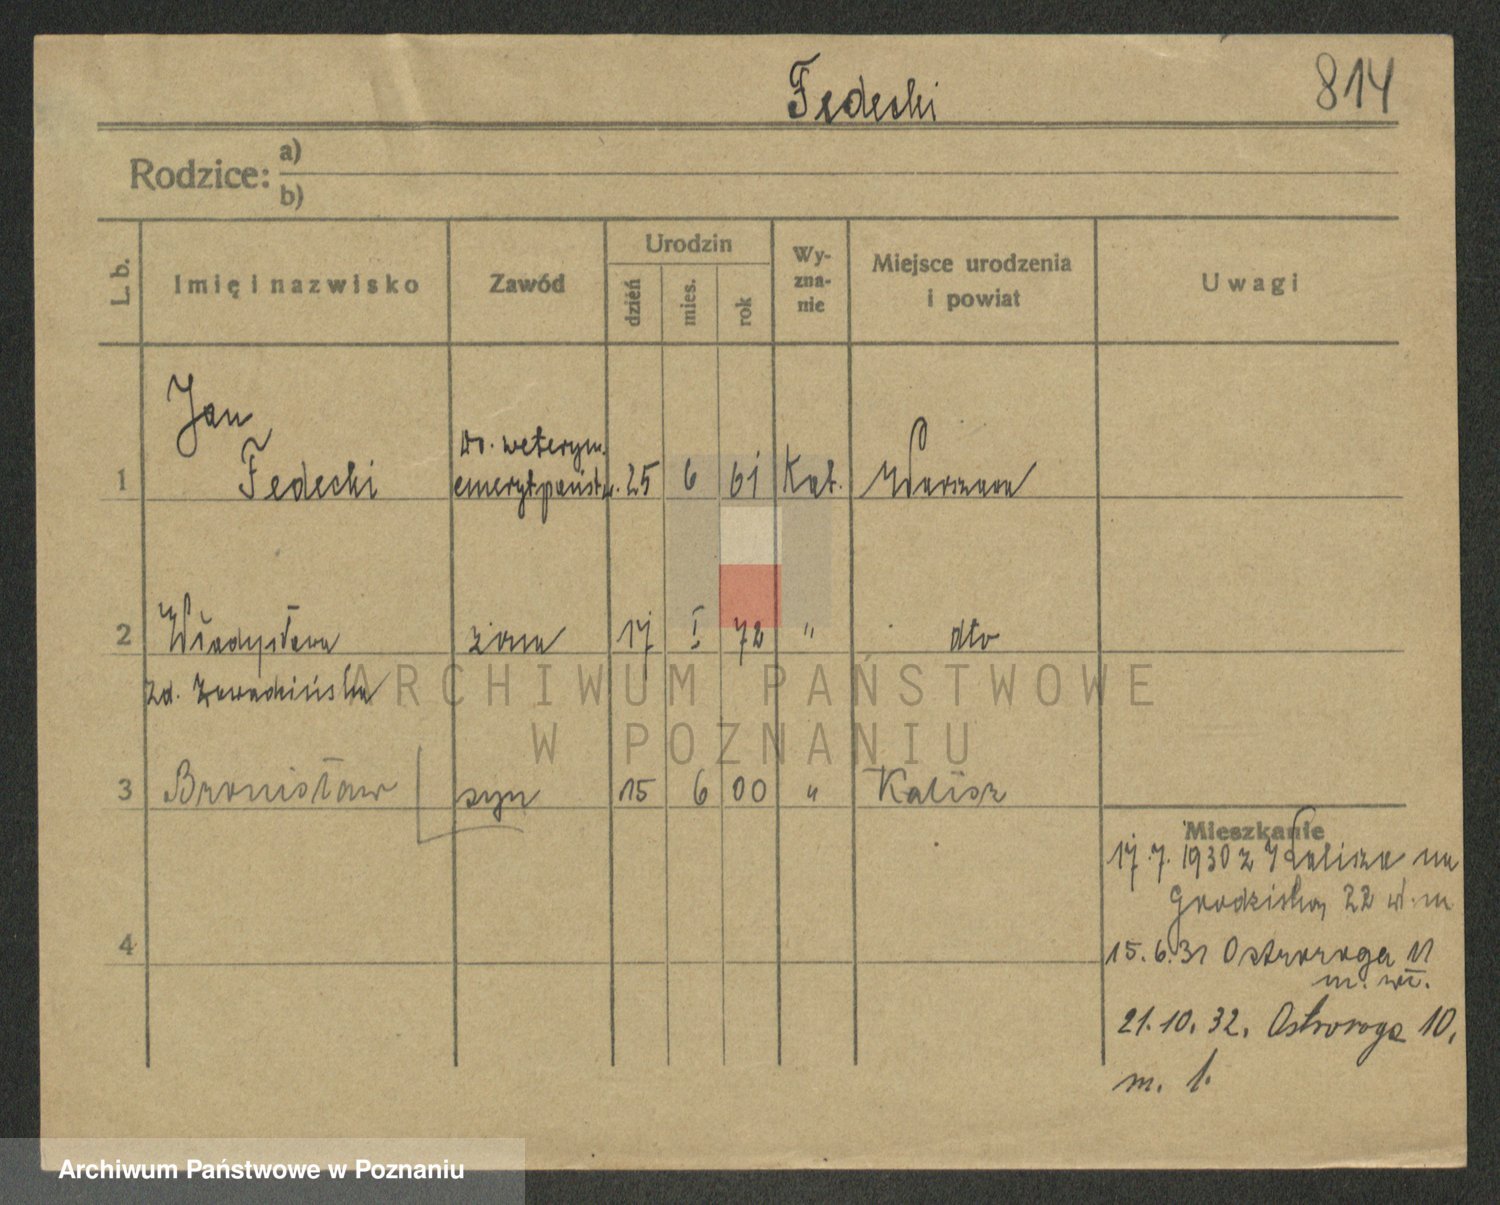 Fedecki
814
Rodzice: a)
b)
L. b.
Imię i nazwisko
Zawód
Urodzin
dzień
mies.
rok
Wy-
zna-
nie
Miejsce urodzenia
i powiat
Uwagi
Jan
dr. weteryn.
1 Fedecki emeryt państw. 25 6 61 Kat. Warszawa
2 Władysława żona 17 I 72 " dto
zd.
ARCHIWUM PAŃSTWOWE
W POZNANIU
3 Bronisław syn 15 6 00 " Kalisz
Mieszkanie
17.7.1930 z Kalisza na
Grodziska 22 m
4
15.6.31 Ostroroga 11
m. wł.
21.10.32. Ostroroga 10,
m. 1.
Archiwum Państwowe w Poznaniu